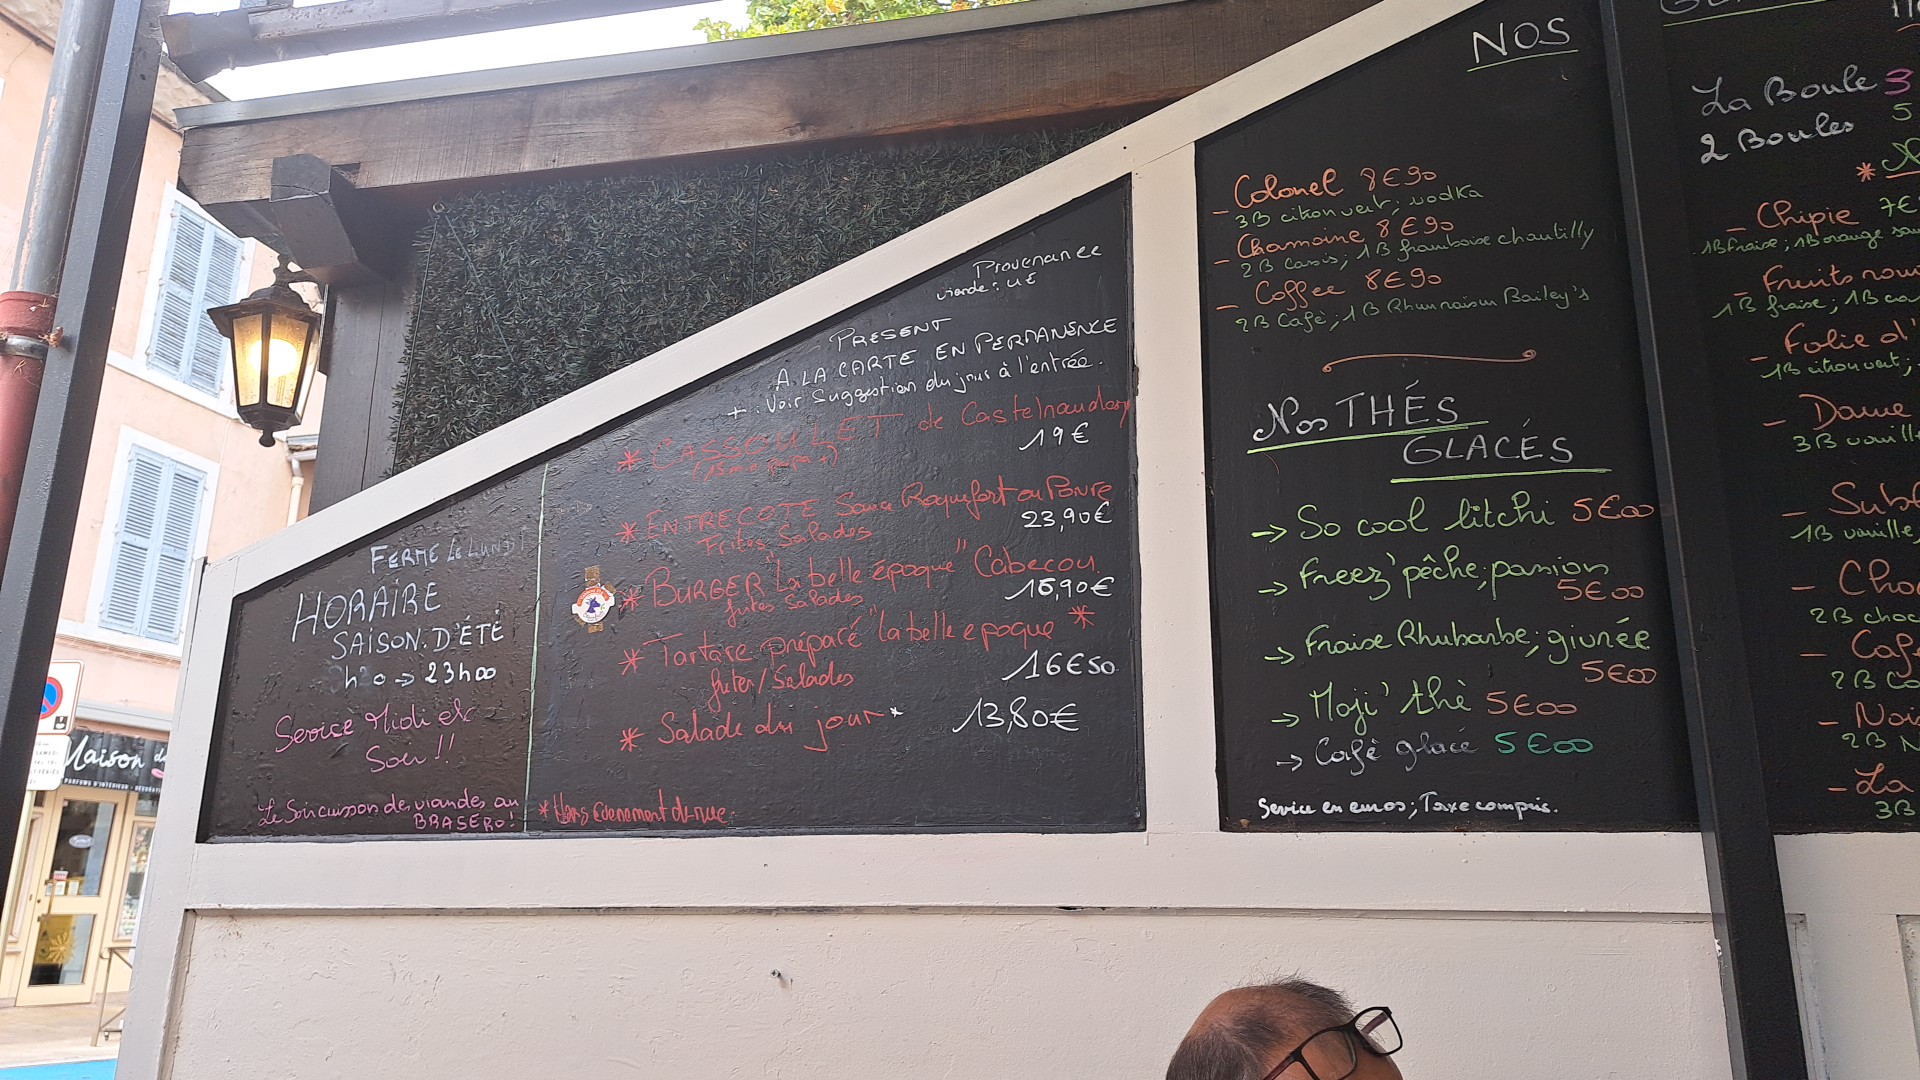 FERME Le LUNDI
HORAIRE
SAISON. D'ÉTÉ
→ 23h00
Service Midi et
Soir !!
Le Soir cuisson des viandes au
BRASERO!
Provenance
viande : UE
PRESENT
A LA CARTE EN PERMANENCE
+ : Voir Suggestion du jour à l'entrée.
* CASSOULET de Castelnaudary
19€
* ENTRECOTE Sauce Roquefort ou Poivre
23,90€
Frites Salades
* BURGER "La belle époque" Cabecou
16,90€
frites Salades
* Tartare préparé "la belle epoque *
frites/Salades
16€50
* Salade du jour *
13,80€
* Hors évenement de rue.
NOS
- Colonel 8€90
3B citron vert; vodka
- Chamoine 8€90
2B Cassis; 1B framboise chantilly
- Coffee 8€90
2B Café; 1B Rhum raisin Bailey's
Nos THÉS
GLACÉS
→ So cool litchi 5€00
→ Freez' pêche, passion
5€00
→ Fraise Rhubarbe; givrée
5€00
→ Moji' thé 5€00
→ Café glacé 5€00
Service en euros; Taxe compris.
La Boule 3
2 Boules 5
- Chipie 7€
1B fraise; 1B orange
- Fruits
1B fraise; 1B
- Folie d'
1B citron vert;
- Dame
3B
-
1B vanille,
-
2B
-
2B
-
2B
- La
3B
Maison